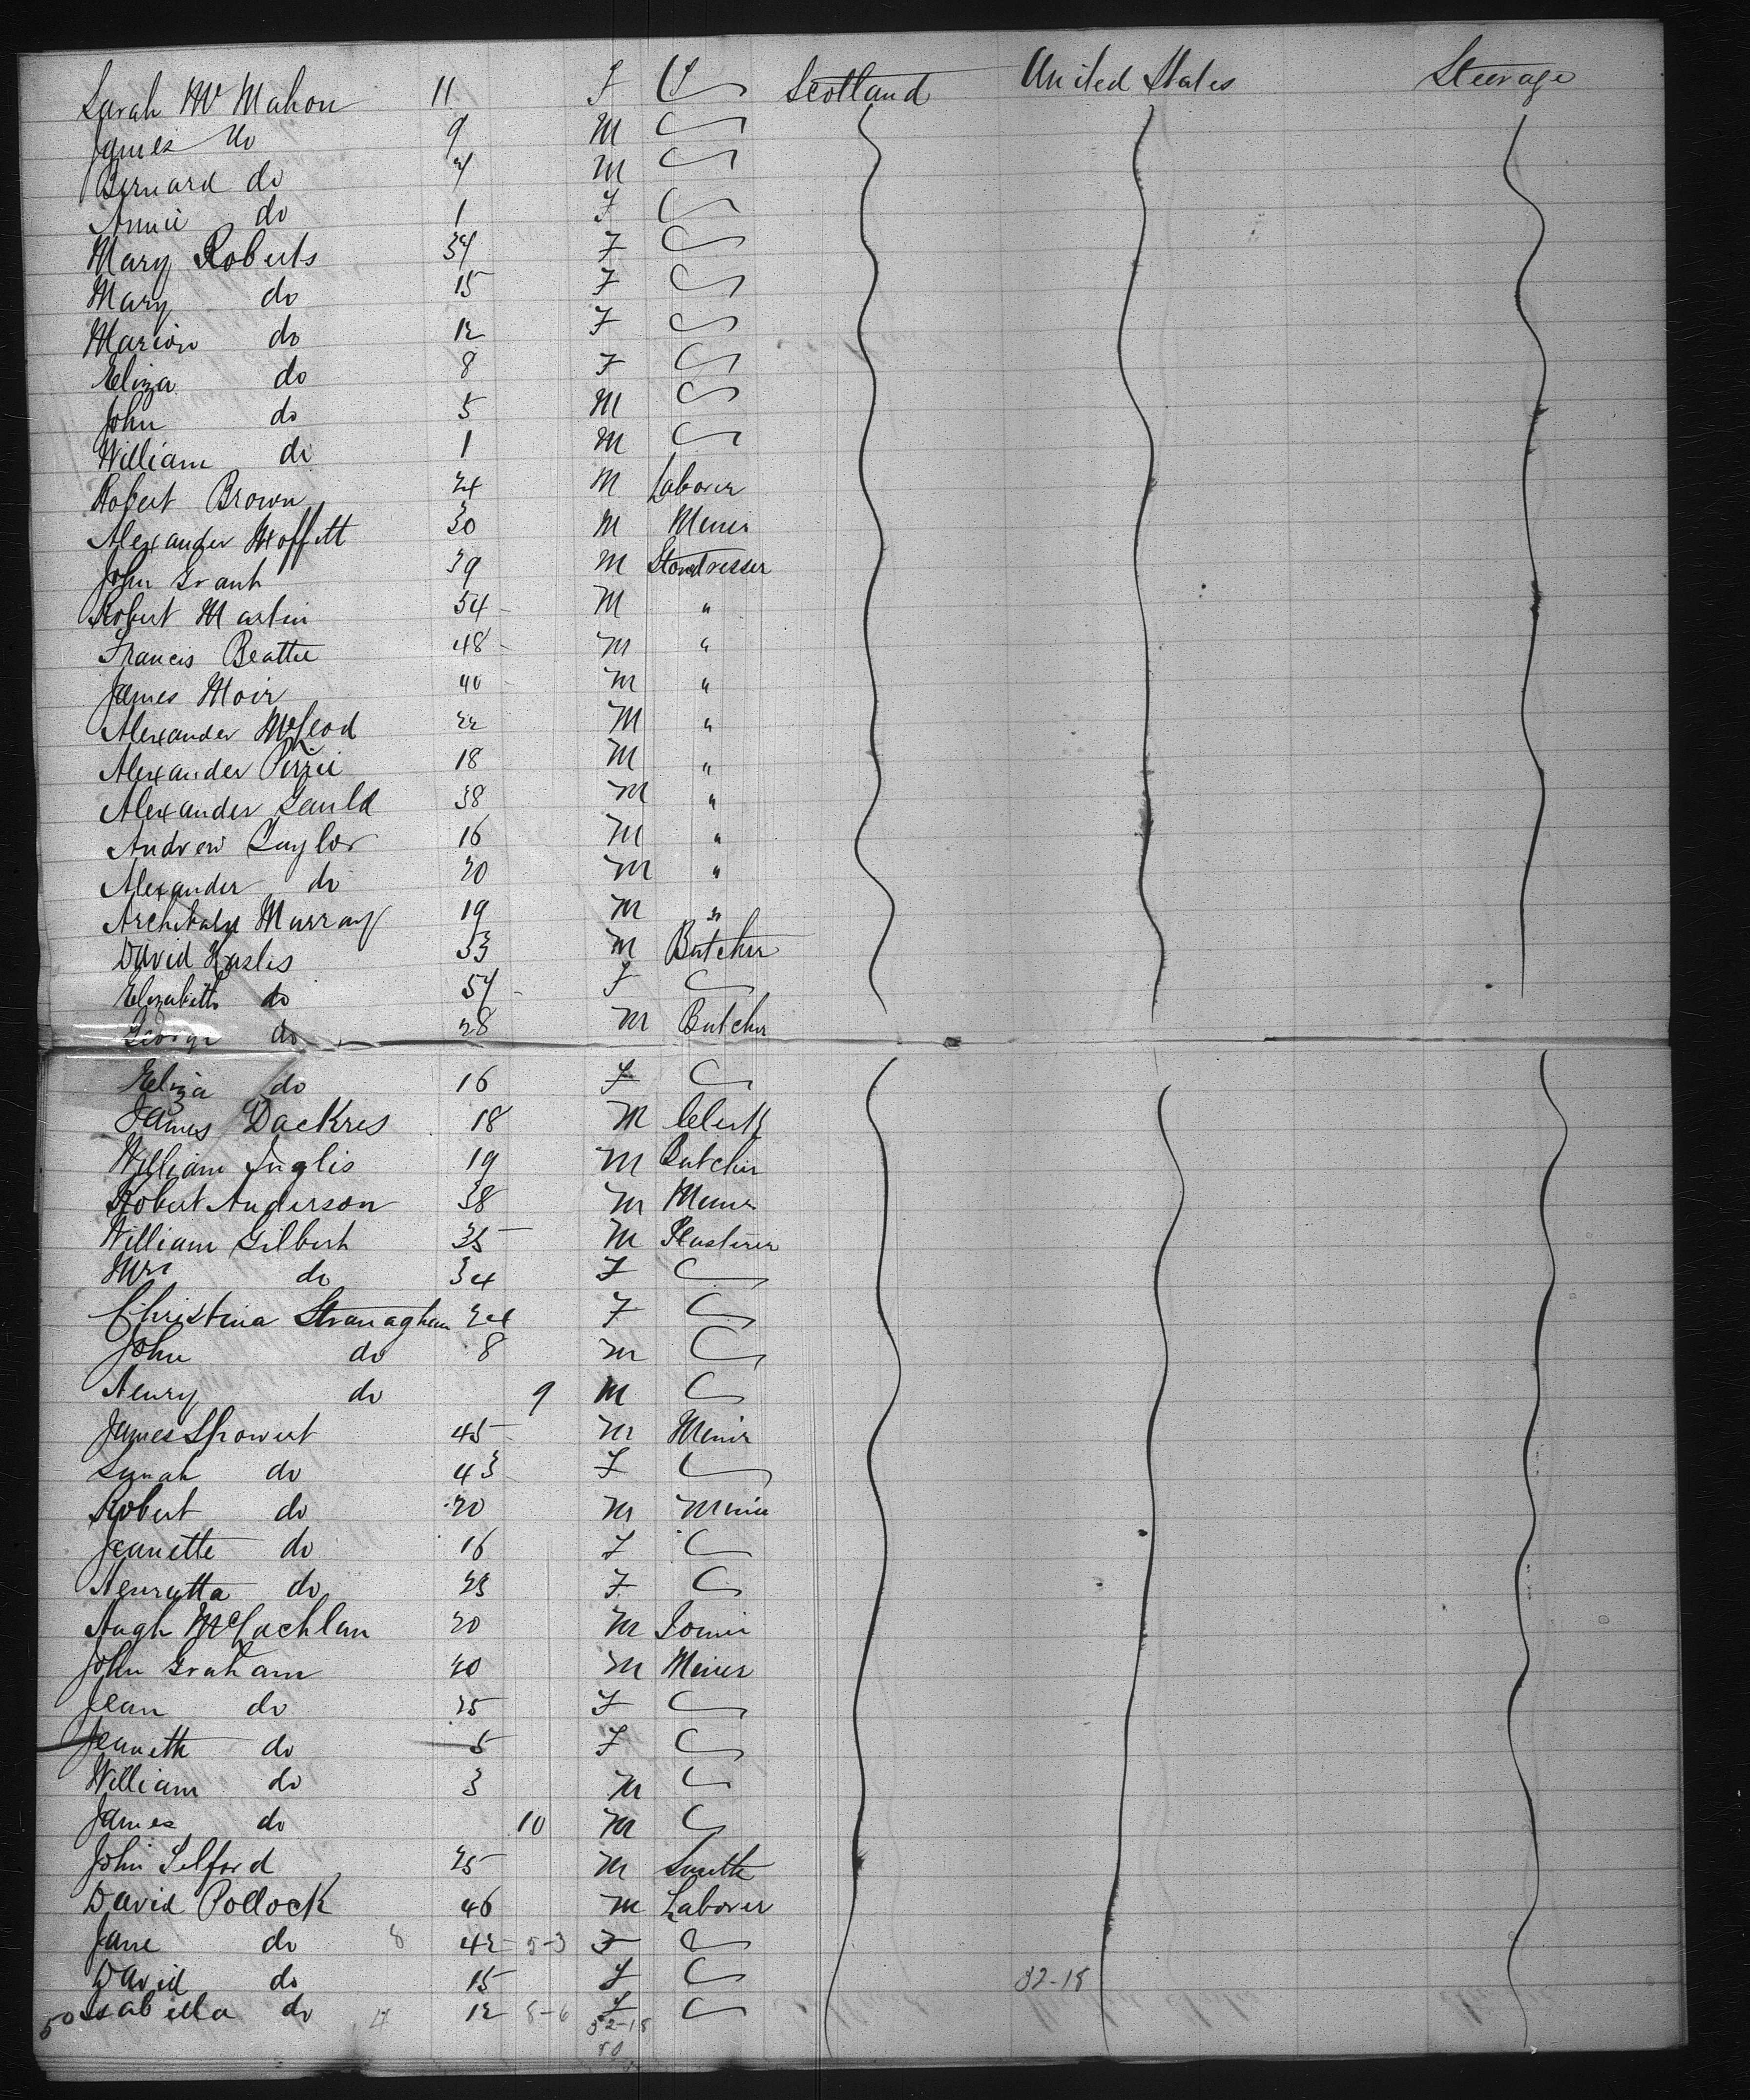 Sarah McMahon 11 F Scotland United States Steerage
James do 9 M
Bernard do 7 M
Annie do 1 F
Mary Roberts 34 F
Mary do 15 F
Marion do 12 F
Eliza do 8 F
John do 5 M
William do 1 M
Robert Brown 24 M Laborer
Alexander Moffett 30 M Miner
John Grant 39 M Stonedresser
Robert Martin 54 M "
Francis Beattie 48 M "
James Moir 40 M "
Alexander McLeod 22 M "
Alexander Pirrie 18 M "
Alexander Gauld 38 M "
Andrew Taylor 16 M "
Alexander do 20 M "
Archibald Murray 19 M "
David 33 M Butcher
Elizabeth do 54 F
George do 28 M Butcher
Eliza do 16 F
James Dackres 18 M Clerk
William Inglis 19 M Butcher
Robert Anderson 38 M Miner
William Gilbert 35 M Plasterer
Mrs do 34 F
Christina Stranaghan 24 F
John do 8 M
Henry do 9 M
James Showert 45 M Miner
Sarah do 43 F
Robert do 20 M Miner
Jeanette do 16 F
Henrytta do 23 F
Hugh McLachlan 20 M Joiner
John Graham 40 M Miner
Jean do 25 F
Jeanette do 5 F
William do 3 M
James do 10 M
John Telford 25 M Smith
David Pollock 46 M Laborer
Jane do 8 42 5-3 F
David do 15 F 32-18
50 Isabella do 17 12 8-6 F
32-18
50